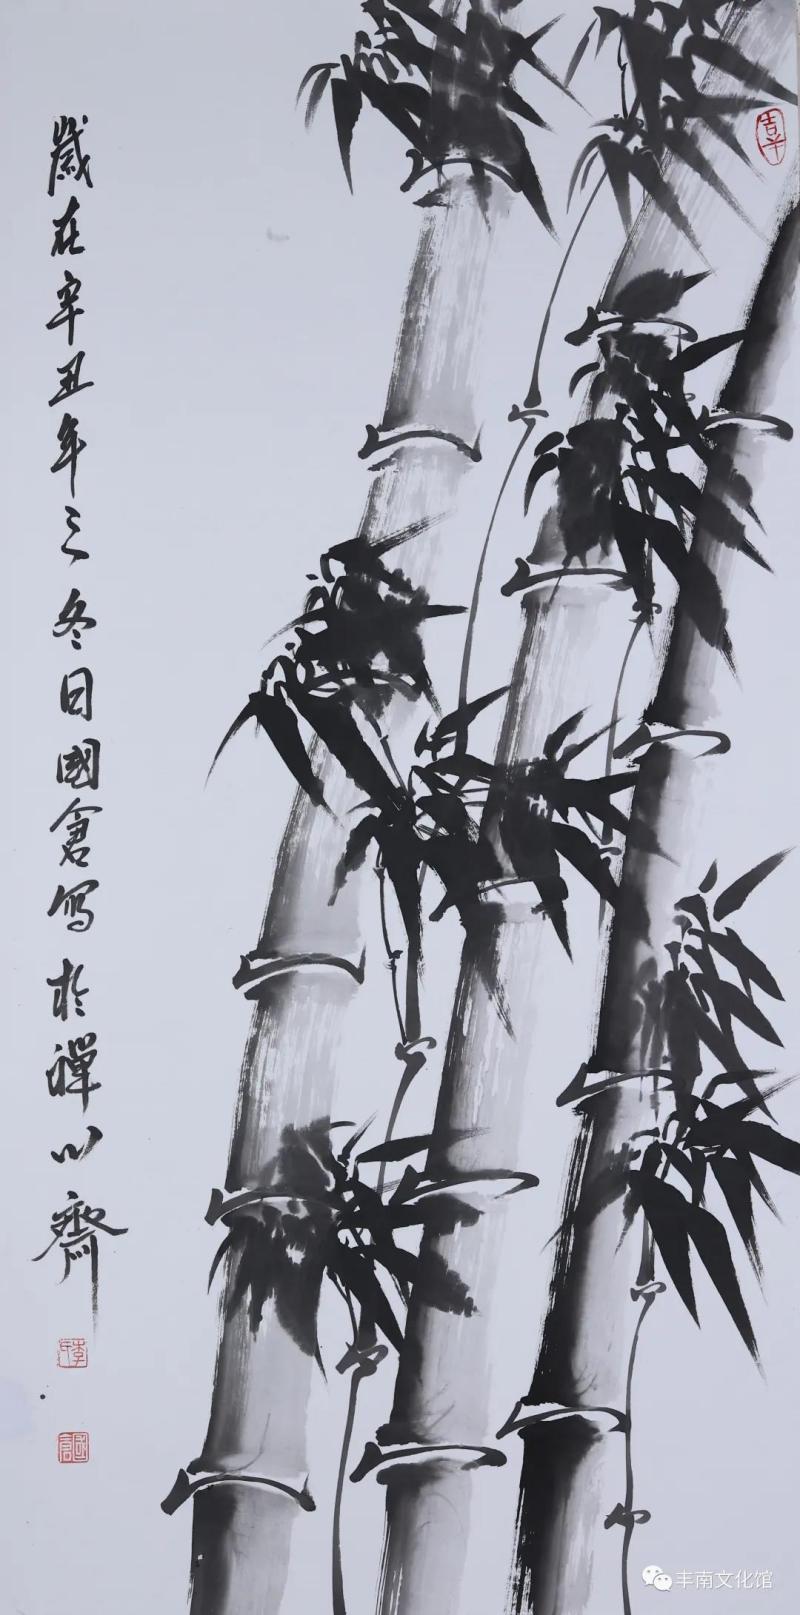 歲在辛丑年三冬日國倉写於禪心齋
丰南文化馆